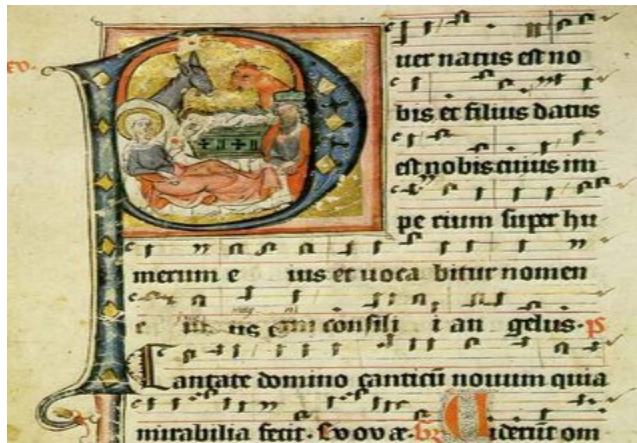 xv.
P
uer natus est no
bis et filius datus
est nobis cuius im
pe rium super hu
merum e ius et uoca bitur nomen
e ius consili i an gelus. ps
Cantate domino canticū nouum quia
mirabilia fecit. Euouae. Viderūt om